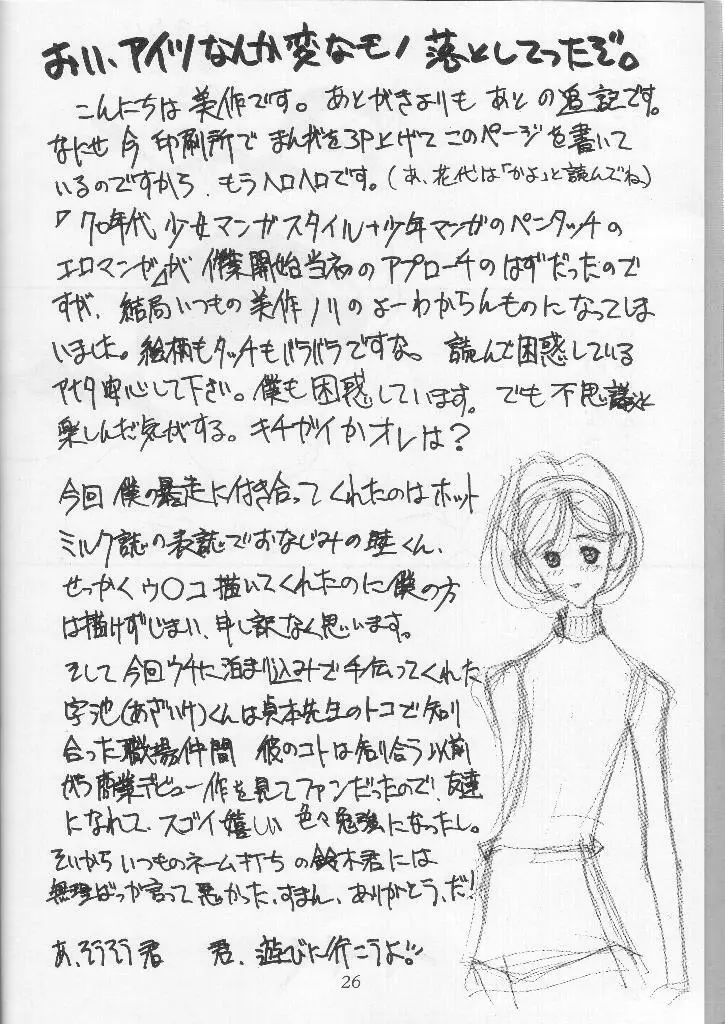 おいい、アイツなんか変なモノ落としてったぞ。
こんにちは美作です。あとがきよりもあとの追記です。
なにせ今印刷所でまんがを3P上げてこのページを書いて
いるのですから、もうヘロヘロです。(あ、花代は「かよ」と読んでね。)
『70年代少女マンガスタイル+少年マンガのペンタッチの
エロマンガ』が作業開始当初のアプローチのはずだったので
すが、結局いつもの美作ノリのよーわからんものになってしま
いました。絵柄もタッチもバラバラですな。読んで困惑している
アナタ安心して下さい。僕も困惑しています。でも不思議と
楽しんだ気がする。キチガイかオレは?
今回僕の暴走に付き合ってくれたのはホット
ミルク誌の表誌でおなじみの睦くん、
せっかくウ○コ描いてくれたのに僕の方
は描けずじまい、申し訳なく思います。
そして今回ウチに泊まり込みで手伝ってくれた
字池(あざいけ)くんは貞本先生のトコで知り
合った職場仲間 彼のコトは知り合う以前
から商業デビュー作を見てファンだったので、友達
になれて、スゴイ嬉しい 色々勉強になったし。
それから いつものネーム打ちの鈴木君には
無理ばっか言って悪かった、すまん、ありがとう、だ!
あ、そうそう君 君、遊びに行こうよ!!
26